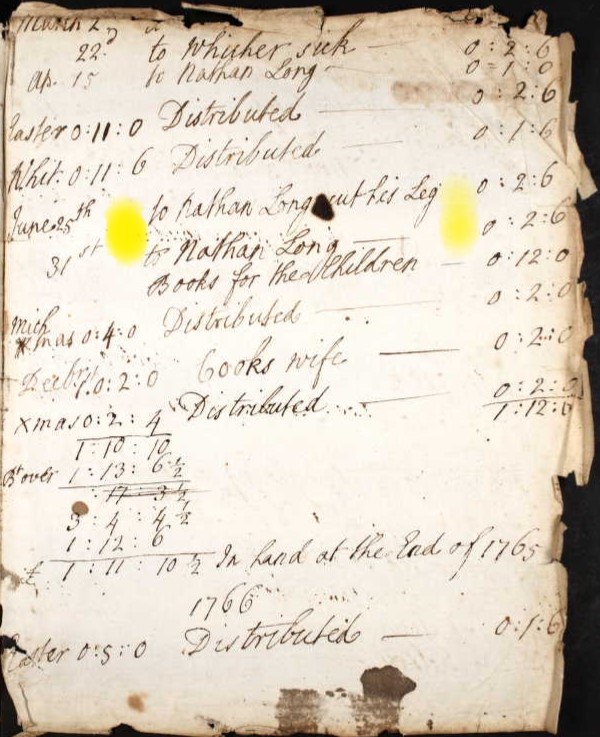 March 2
22 to Whicher sick — 0 : 2 : 6
Ap. 15 to Nathan Long — 0 - 1 : 0
0 : 2 : 6
Easter 0 : 11 : 0 Distributed — 0 : 1 : 6
Whit. 0 : 11 : 6 Distributed —
June 25th to Nathan Long cut his Leg 0 : 2 : 6
31st to Nathan Long — 0 : 2 : 6
Books for the Children — 0 : 12 : 0
Mich
mas 0 : 4 : 0 Distributed — 0 : 2 : 0
0 : 2 : 0 Cooks wife — 0 : 2 : 0
Xmas 0 : 2 : 4 Distributed 0 : 2 : 0
1 : 10 : 10 1 : 12 : 6
Bt over 1 : 13 : 6 ½
3 : 4 : 4 ½
1 : 12 : 6
£ 1 : 11 : 10 ½ In hand at the End of 1765
1766
Easter 0 : 5 : 0 Distributed — 0 : 1 : 6